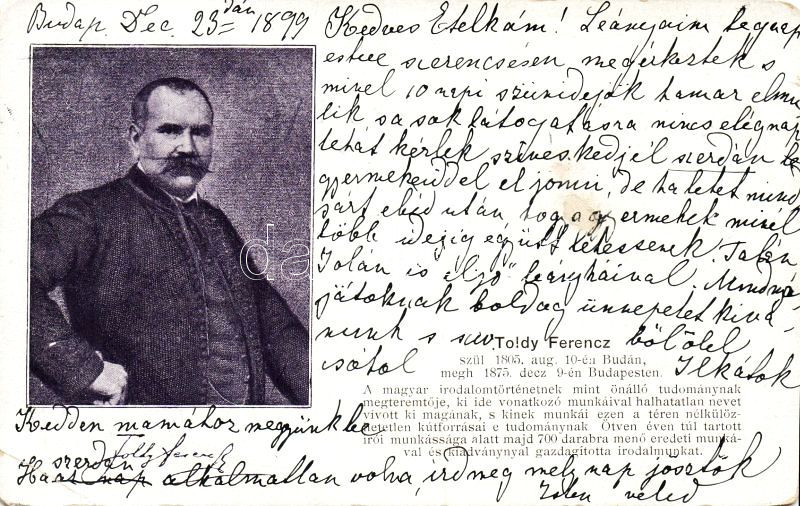 Budap. Dec. 23-dán 1899
Kedves Etelkám! Leányaim tegnap
estve szerencsésen megérkeztek s
mivel 10 napi szünidejök hamar elmu
lik s a sok látogatásra nincs elég nap
tehát kérlek szíveskedjél szerdán
gyermekeiddel eljönni, de ha lehet mind
járt ebéd után hogy a gyermekek minél
több ideig együtt lehessenek. Talán
Jolán is eljő leánykáival. Mindnyá
jatoknak boldog ünnepet kívá
nunk s
Toldy Ferencz
szül 1805. aug. 10-én Budán,
megh 1875. decz 9-én Budapesten.
Ilkátok
A magyar irodalomtörténetnek mint önálló tudománynak
megteremtője, ki ide vonatkozó munkáival halhatatlan nevet
vívott ki magának, s kinek munkái ezen a téren nélkülöz-
hetetlen kútforrásai e tudománynak Ötven éven túl tartott
írói munkássága alatt majd 700 darabra menő eredeti munká-
val és kiadványnyal gazdagította irodalmunkat.
Kedden mamához megyünk be
Toldy Ferencz
szerdán
Ha a nap alkalmatlan volna, írd meg mely nap jösztök
veled